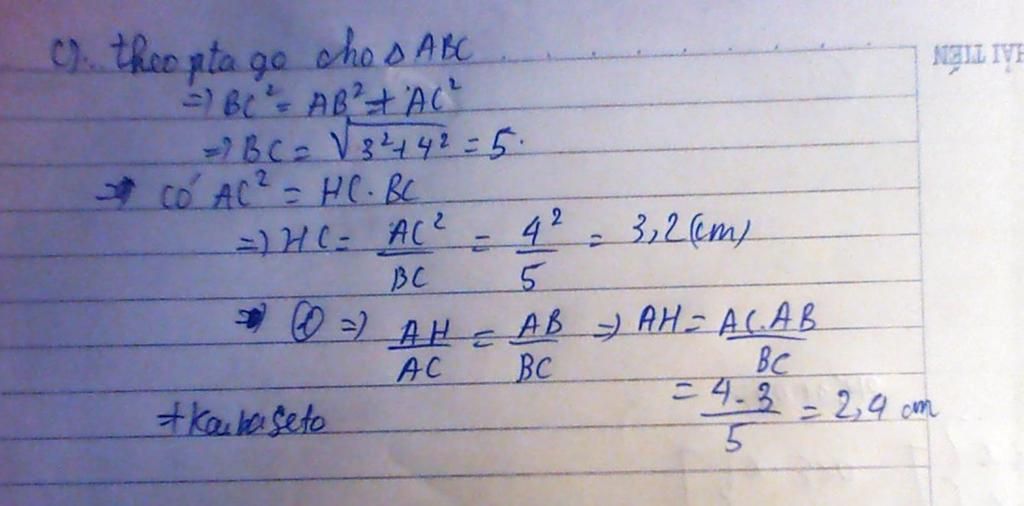 c). theo pta go cho Δ ABC
=> BC² = AB² + AC²
=> BC = √3²+4² = 5.
=> có AC² = HC. BC
=> HC = AC²/BC = 4²/5 = 3,2 (cm)
=> ① => AH/AC = AB/BC => AH = AC.AB/BC
= 4.3/5 = 2,4 cm
+Kaubaseto
HẢI TIẾN